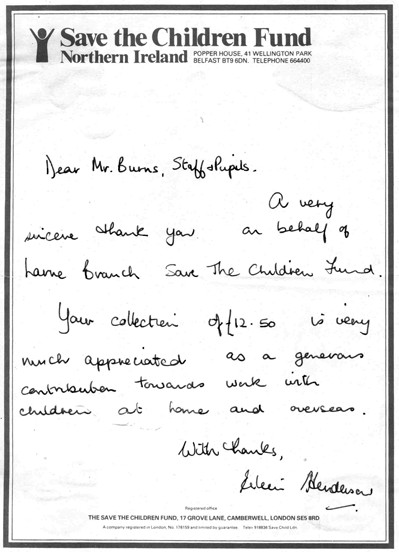 Save the Children Fund
Northern Ireland
POPPER HOUSE, 41 WELLINGTON PARK
BELFAST BT9 6DN. TELEPHONE 664400
Dear Mr. Burns, Staff & Pupils.
A very
sincere thank you on behalf of
Larne Branch Save The Children Fund.
Your collection of £12.50 is very
much appreciated as a generous
contribution towards work with
children at home and overseas.
With thanks,
Eileen Henderson
Registered office
THE SAVE THE CHILDREN FUND, 17 GROVE LANE, CAMBERWELL, LONDON SE5 8RD
A company registered in London. No. 178159 and limited by guarantee. Telex